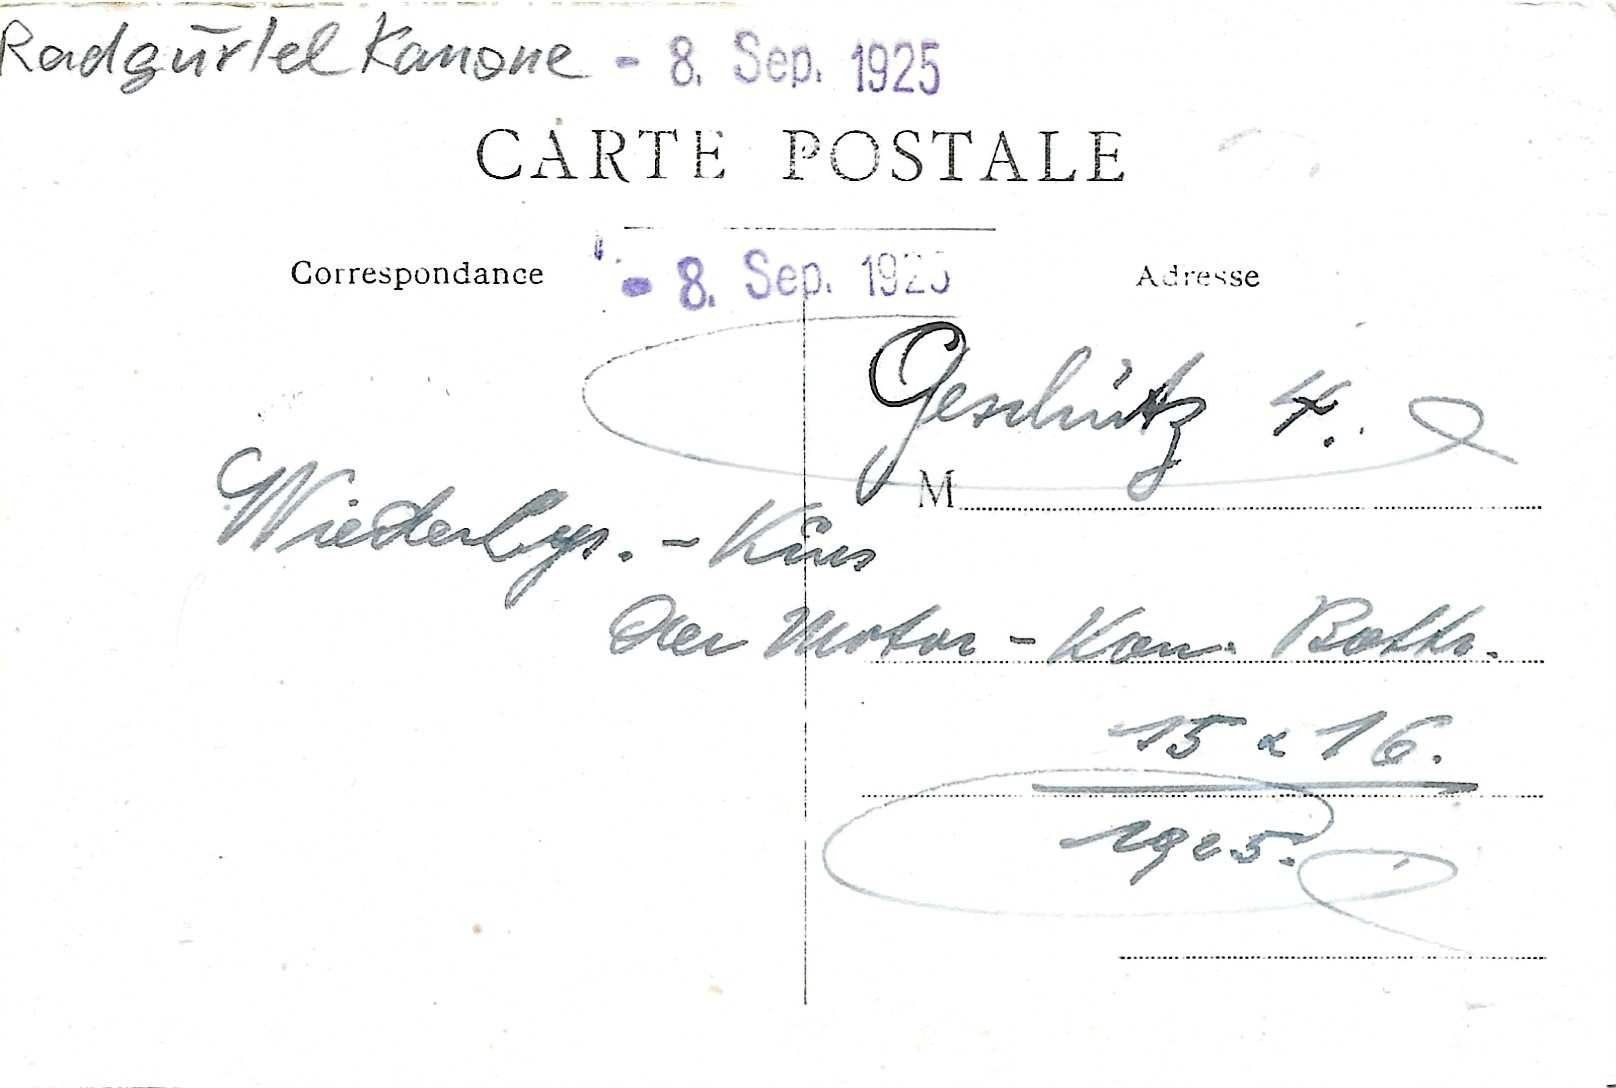 Radgürtel Kanone - 8. Sep. 1925
CARTE POSTALE
Correspondance
- 8. Sep. 1925
Adresse
Geschütz 4.
M
Wiederhgs. - Kurs
der Motor - Kan. Battr.
15 & 16.
1925.